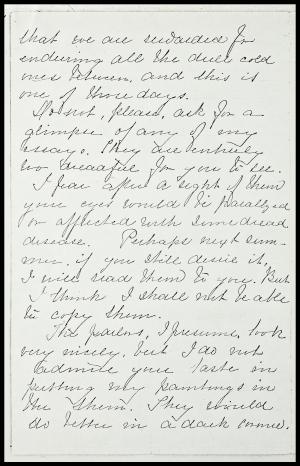 that we are rewarded for
enduring all the dull cold
ones between, and this is
one of those days.
Do not, please, ask for a
glimpse of any of my
essays. They are entirely
too for you to see.
I fear after a sight of them
your eyes would be paralyzed
or affected with some dread
disease. Perhaps next sum-
mer, if you still desire it,
I will read them to you. But
I think I shall not be able
to copy them.
The parlors, I presume, look
very nicely, but I do not
admire your taste in
putting my paintings in
the them. They would
do better in a dark corner.